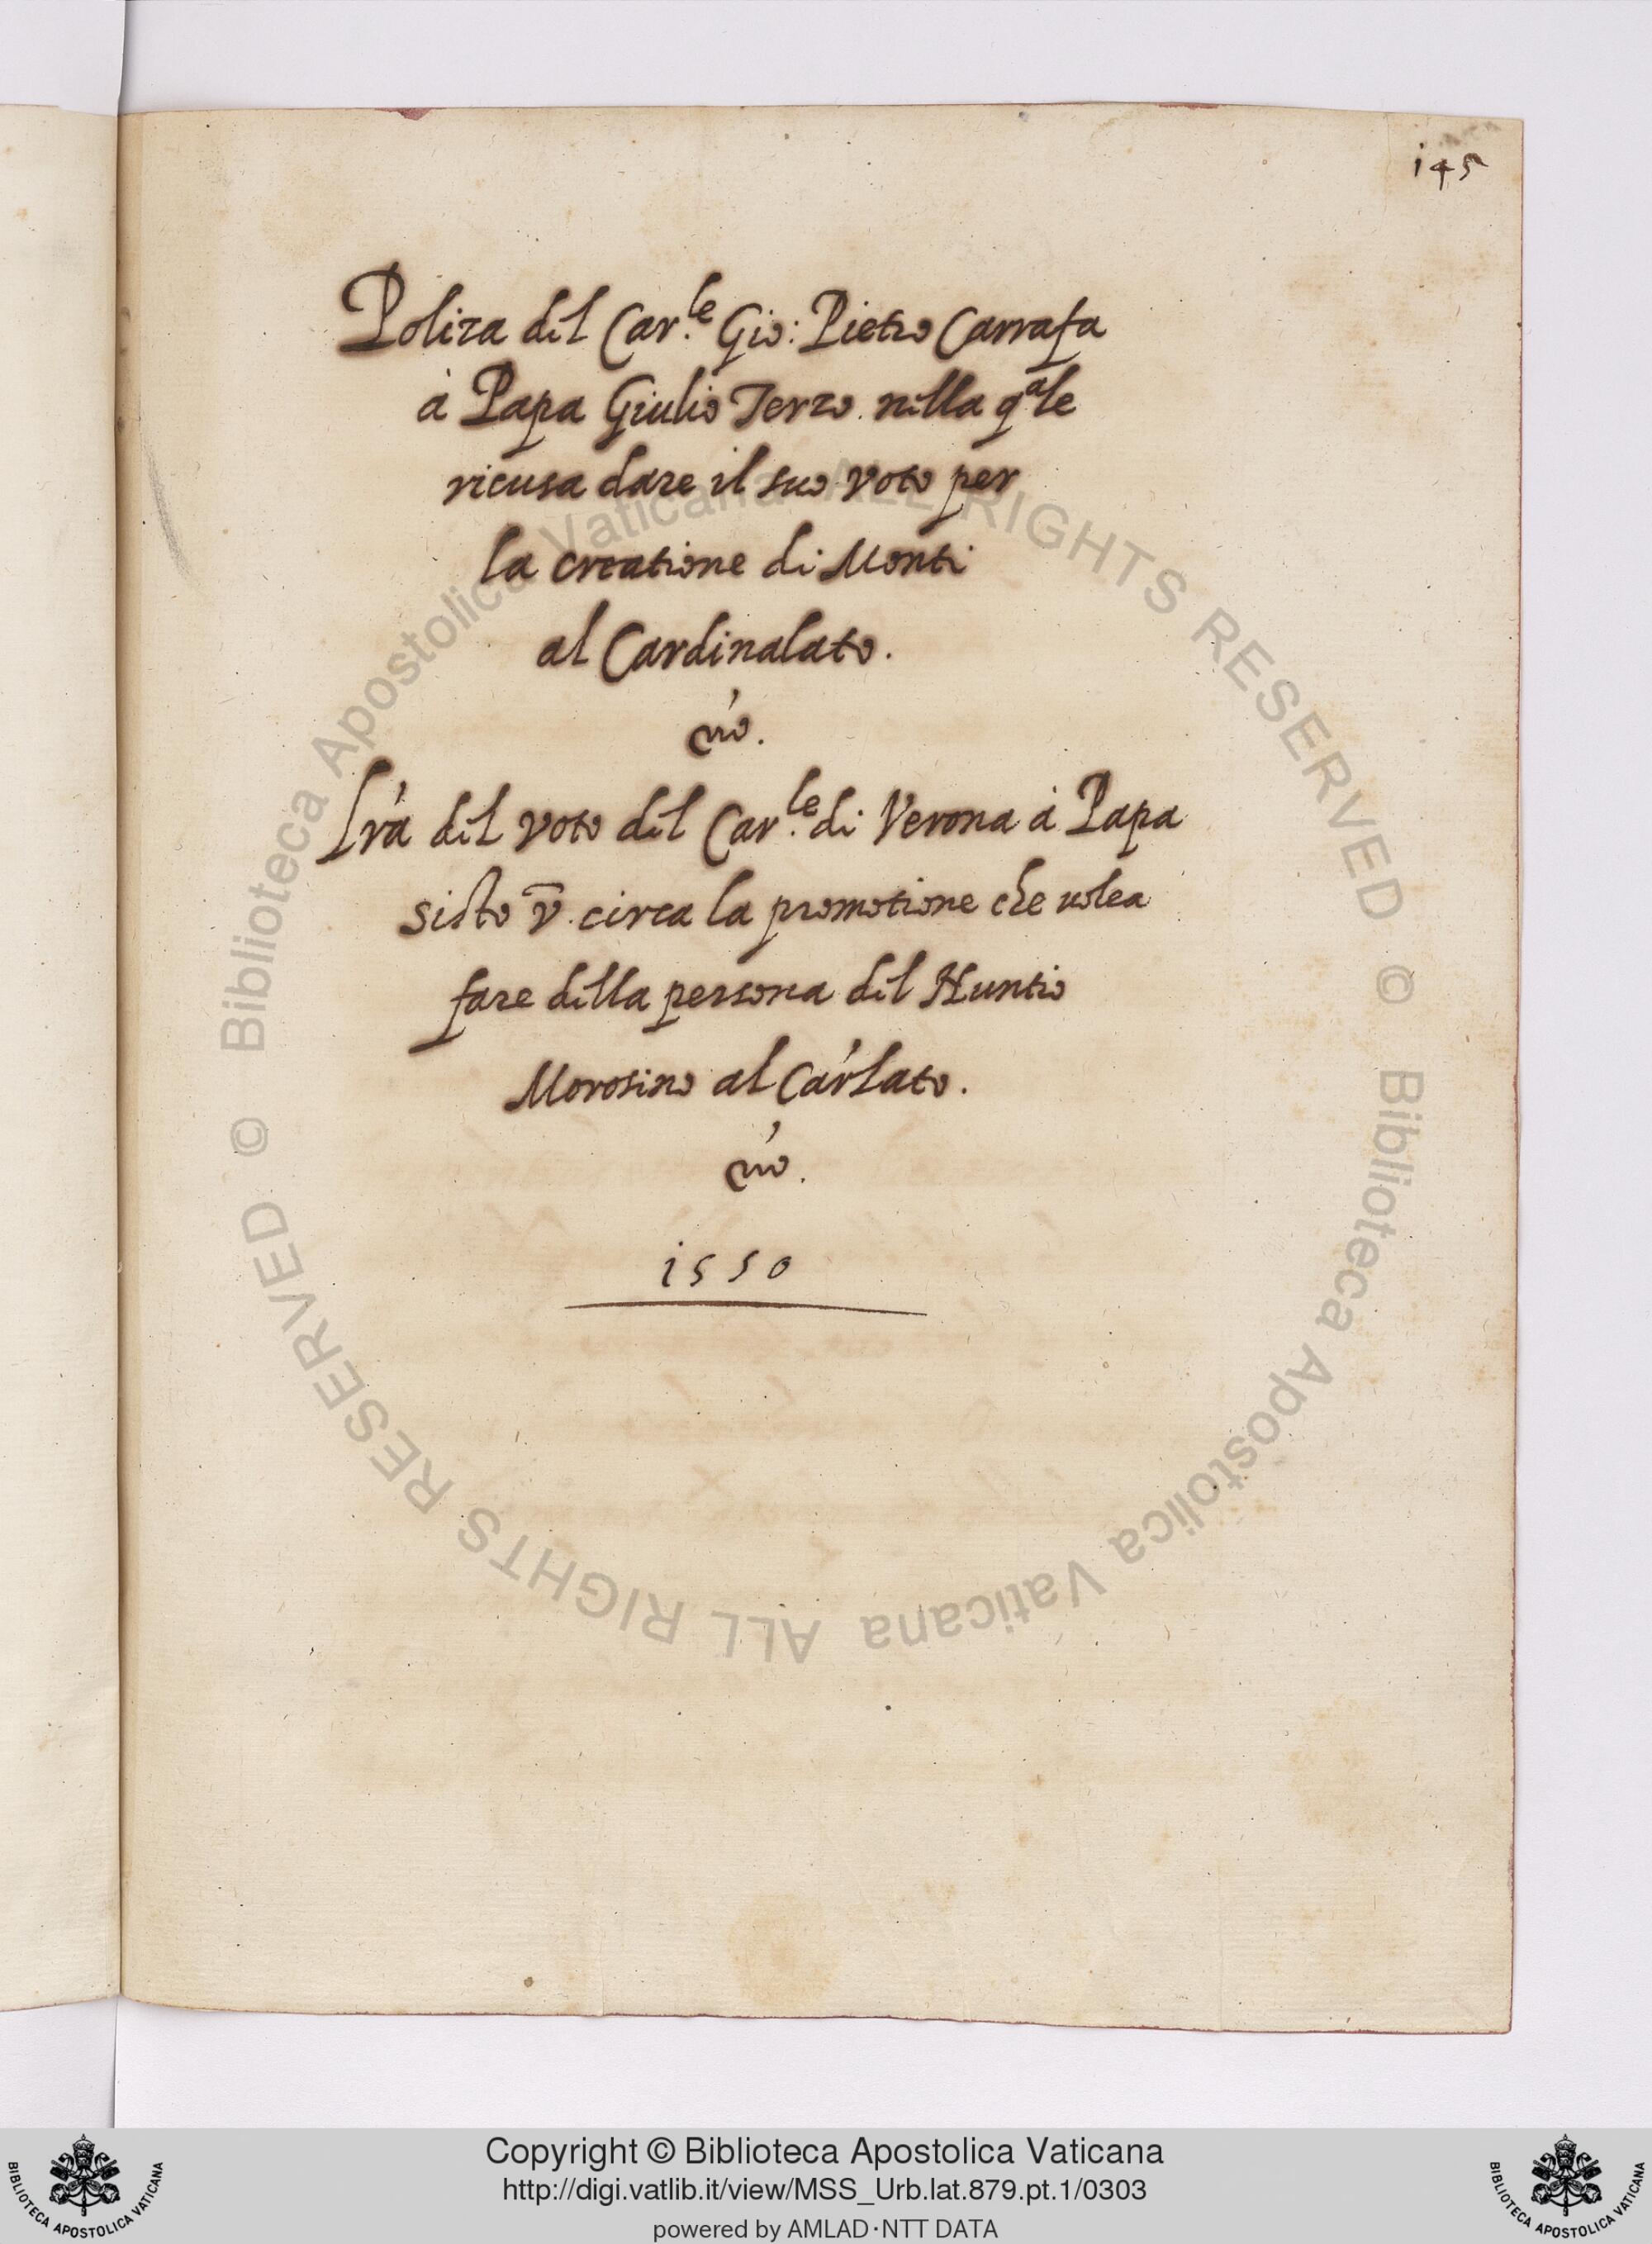 i45
Poliza del Car.le Gio: Pietro Carrafa
à Papa Giulio Terzo nella q.ale
ricusa dare il suo voto per
la creatione di Monti
al Cardinalato.
Lr̃a del voto del Car.le di Verona à Papa
Sisto v̄. circa la promotione che uolea
fare della persona del Nuntio
Morosino al Car̃lato.
1550
© Biblioteca Apostolica Vaticana ALL RIGHTS RESERVED © Biblioteca Apostolica Vaticana ALL RIGHTS RESERVED
Copyright © Biblioteca Apostolica Vaticana
http://digi.vatlib.it/view/MSS_Urb.lat.879.pt.1/0303
powered by AMLAD·NTT DATA
BIBLIOTECA APOSTOLICA VATICANA
BIBLIOTECA APOSTOLICA VATICANA